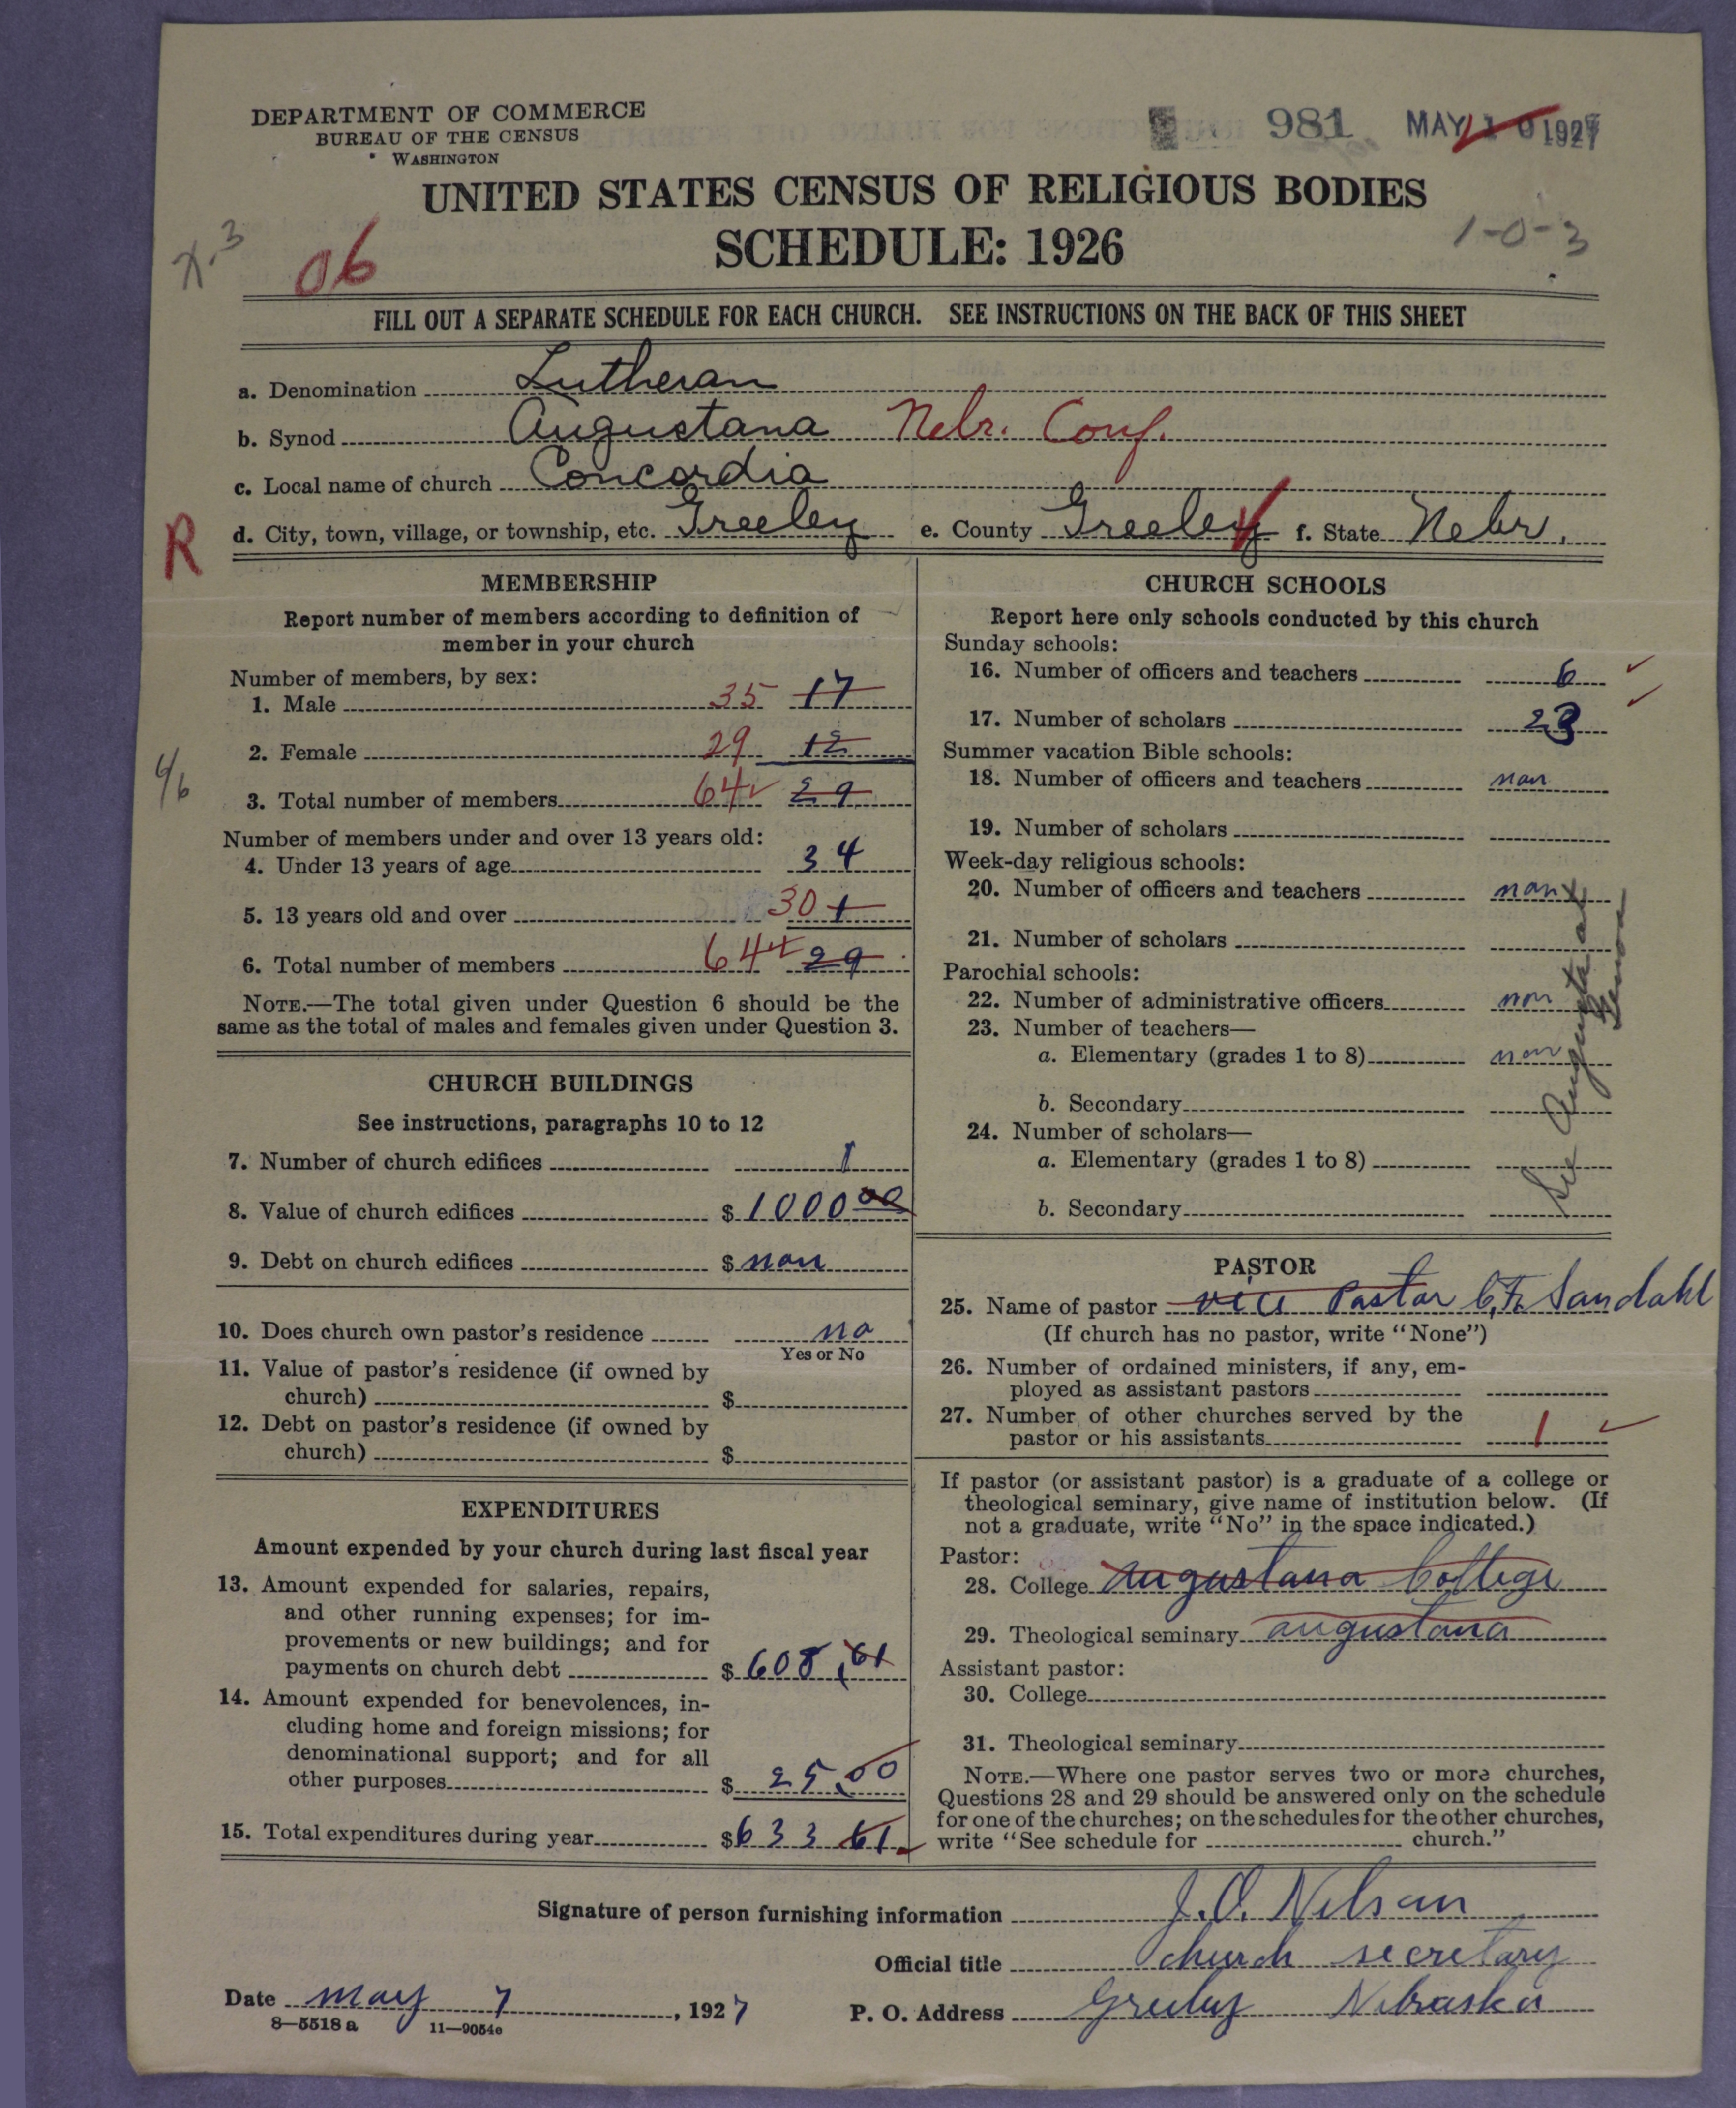 DEPARTMENT OF COMMERCE
BUREAU OF THE CENSUS
WASHINGTON
981 MAY 10 1927
UNITED STATES CENSUS OF RELIGIOUS BODIES
SCHEDULE: 1926
X-3
06
1-0-3
FILL OUT A SEPARATE SCHEDULE FOR EACH CHURCH. SEE INSTRUCTIONS ON THE BACK OF THIS SHEET
a. Denomination Lutheran
b. Synod Augustana Nebr. Conf.
c. Local name of church Concordia
R
d. City, town, village, or township, etc. Greeley e. County Greeley f. State Nebr.
MEMBERSHIP
Report number of members according to definition of
member in your church
Number of members, by sex:
1. Male 35 17
2. Female 29 12
4/6
3. Total number of members 64 29
Number of members under and over 13 years old:
4. Under 13 years of age 34
5. 13 years old and over 30
6. Total number of members 64 29
NOTE.—The total given under Question 6 should be the
same as the total of males and females given under Question 3.
CHURCH BUILDINGS
See instructions, paragraphs 10 to 12
7. Number of church edifices 1
8. Value of church edifices $1000 00
9. Debt on church edifices $ non
10. Does church own pastor's residence no
Yes or No
11. Value of pastor's residence (if owned by
church) $
12. Debt on pastor's residence (if owned by
church) $
EXPENDITURES
Amount expended by your church during last fiscal year
13. Amount expended for salaries, repairs,
and other running expenses; for im-
provements or new buildings; and for
payments on church debt $608,61
14. Amount expended for benevolences, in-
cluding home and foreign missions; for
denominational support; and for all
other purposes $ 25.00
15. Total expenditures during year $633 61
CHURCH SCHOOLS
Report here only schools conducted by this church
Sunday schools:
16. Number of officers and teachers 6
17. Number of scholars 23
Summer vacation Bible schools:
18. Number of officers and teachers non
19. Number of scholars
Week-day religious schools:
20. Number of officers and teachers non
21. Number of scholars
Parochial schools:
22. Number of administrative officers non
23. Number of teachers—
a. Elementary (grades 1 to 8) non
b. Secondary
24. Number of scholars—
a. Elementary (grades 1 to 8)
b. Secondary
See Augustana at
PASTOR
25. Name of pastor vice Pastor C, F. Sandahl
(If church has no pastor, write "None")
26. Number of ordained ministers, if any, em-
ployed as assistant pastors
27. Number of other churches served by the
pastor or his assistants 1
If pastor (or assistant pastor) is a graduate of a college or
theological seminary, give name of institution below. (If
not a graduate, write "No" in the space indicated.)
Pastor:
28. College Augustana College
29. Theological seminary augustana
Assistant pastor:
30. College
31. Theological seminary
NOTE.—Where one pastor serves two or more churches,
Questions 28 and 29 should be answered only on the schedule
for one of the churches; on the schedules for the other churches,
write "See schedule for church."
Signature of person furnishing information J.O. Nelson
Official title Church secretary
Date may 7, 1927 P. O. Address Greeley Nebraska
8—5518 a 11—9054e